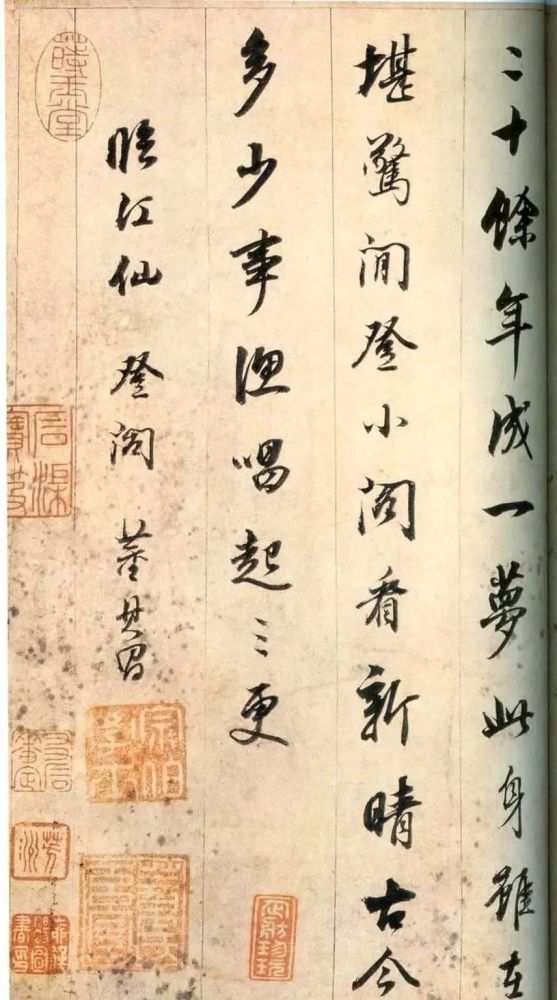 二十餘年成一夢此身雖在
堪驚閒登小閣看新晴古今
多少事漁唱起三更
臨江仙 登閣 董其昌
宗伯學士